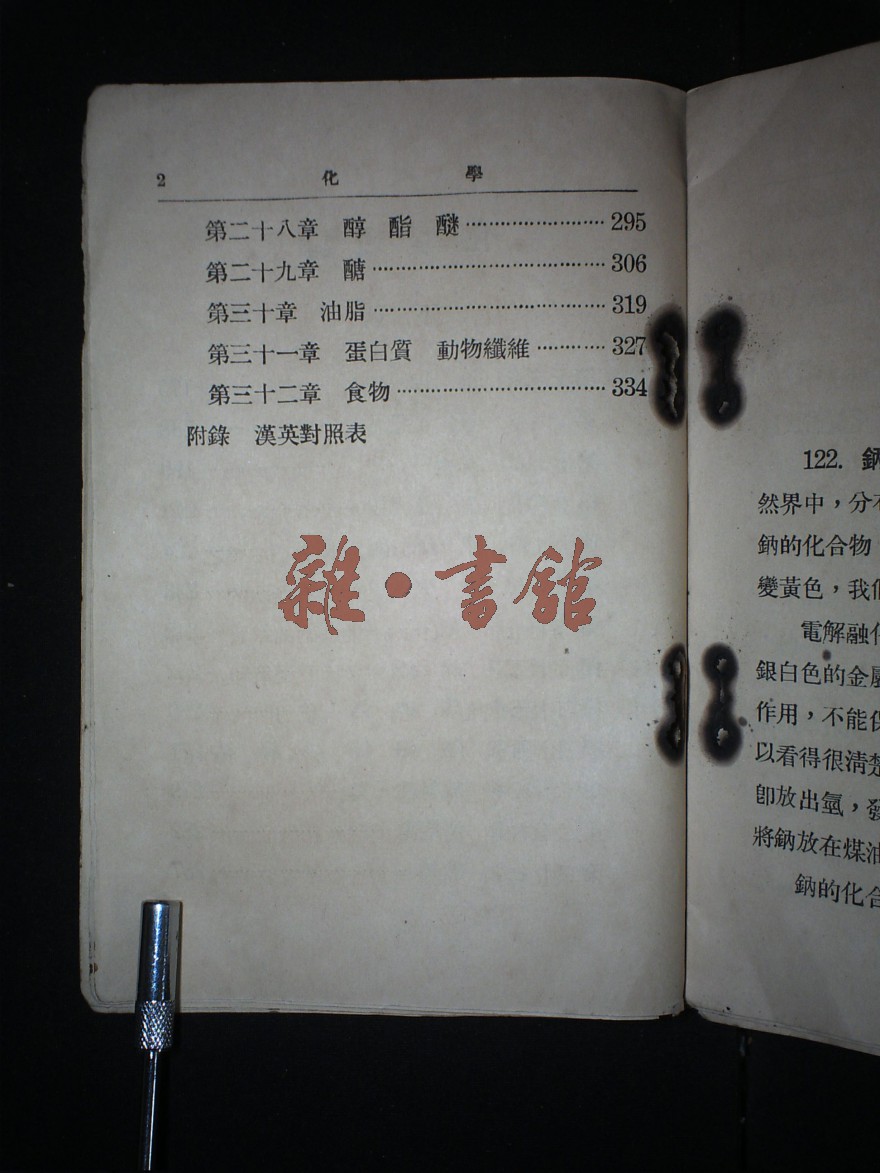 2 化 學
第二十八章 醇 酯 醚 …………………… 295
第二十九章 醣 ………………………………… 306
第三十章 油脂 ………………………………… 319
第三十一章 蛋白質 動物纖維 ………… 327
第三十二章 食物 ……………………………… 334
附錄 漢英對照表
雜·書館
122. 鈉
然界中，分
鈉的化合物
變黃色，我
電解融
銀白色的金
作用，不能
以看得很清楚
卽放出氫，發
將鈉放在煤油
鈉的化合